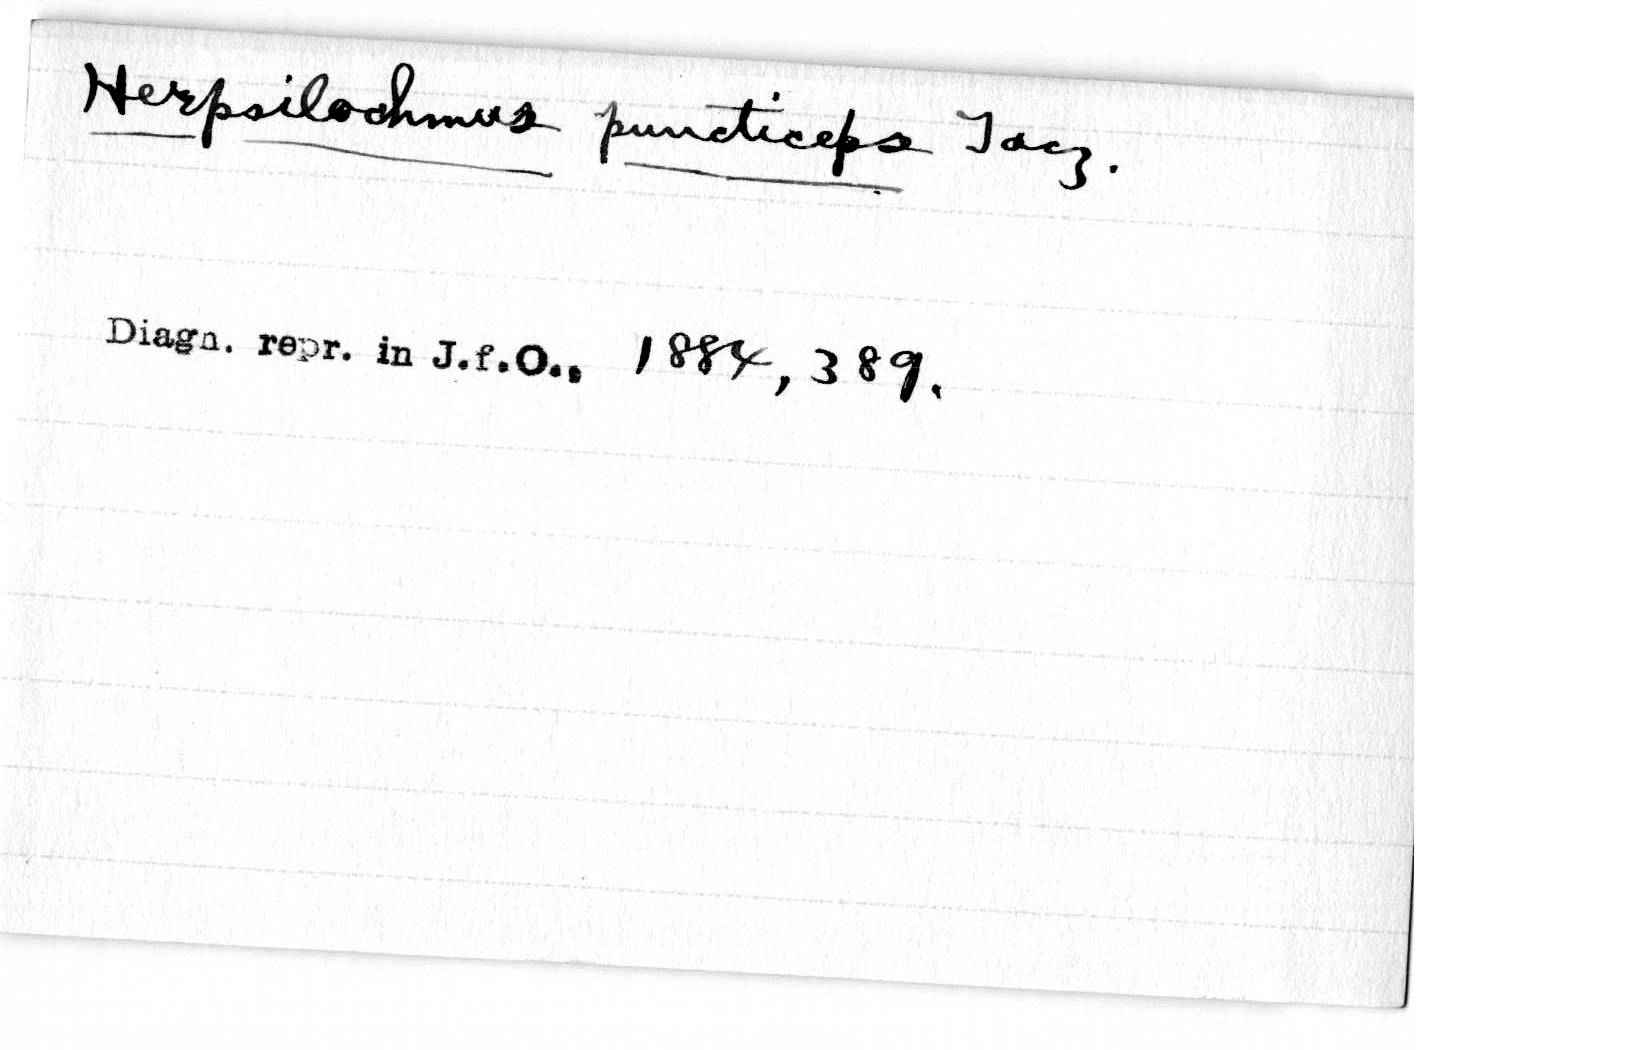 Herpsilochmus puncticeps Tacz.
Diagn. repr. in J.f.O., 1884, 389.